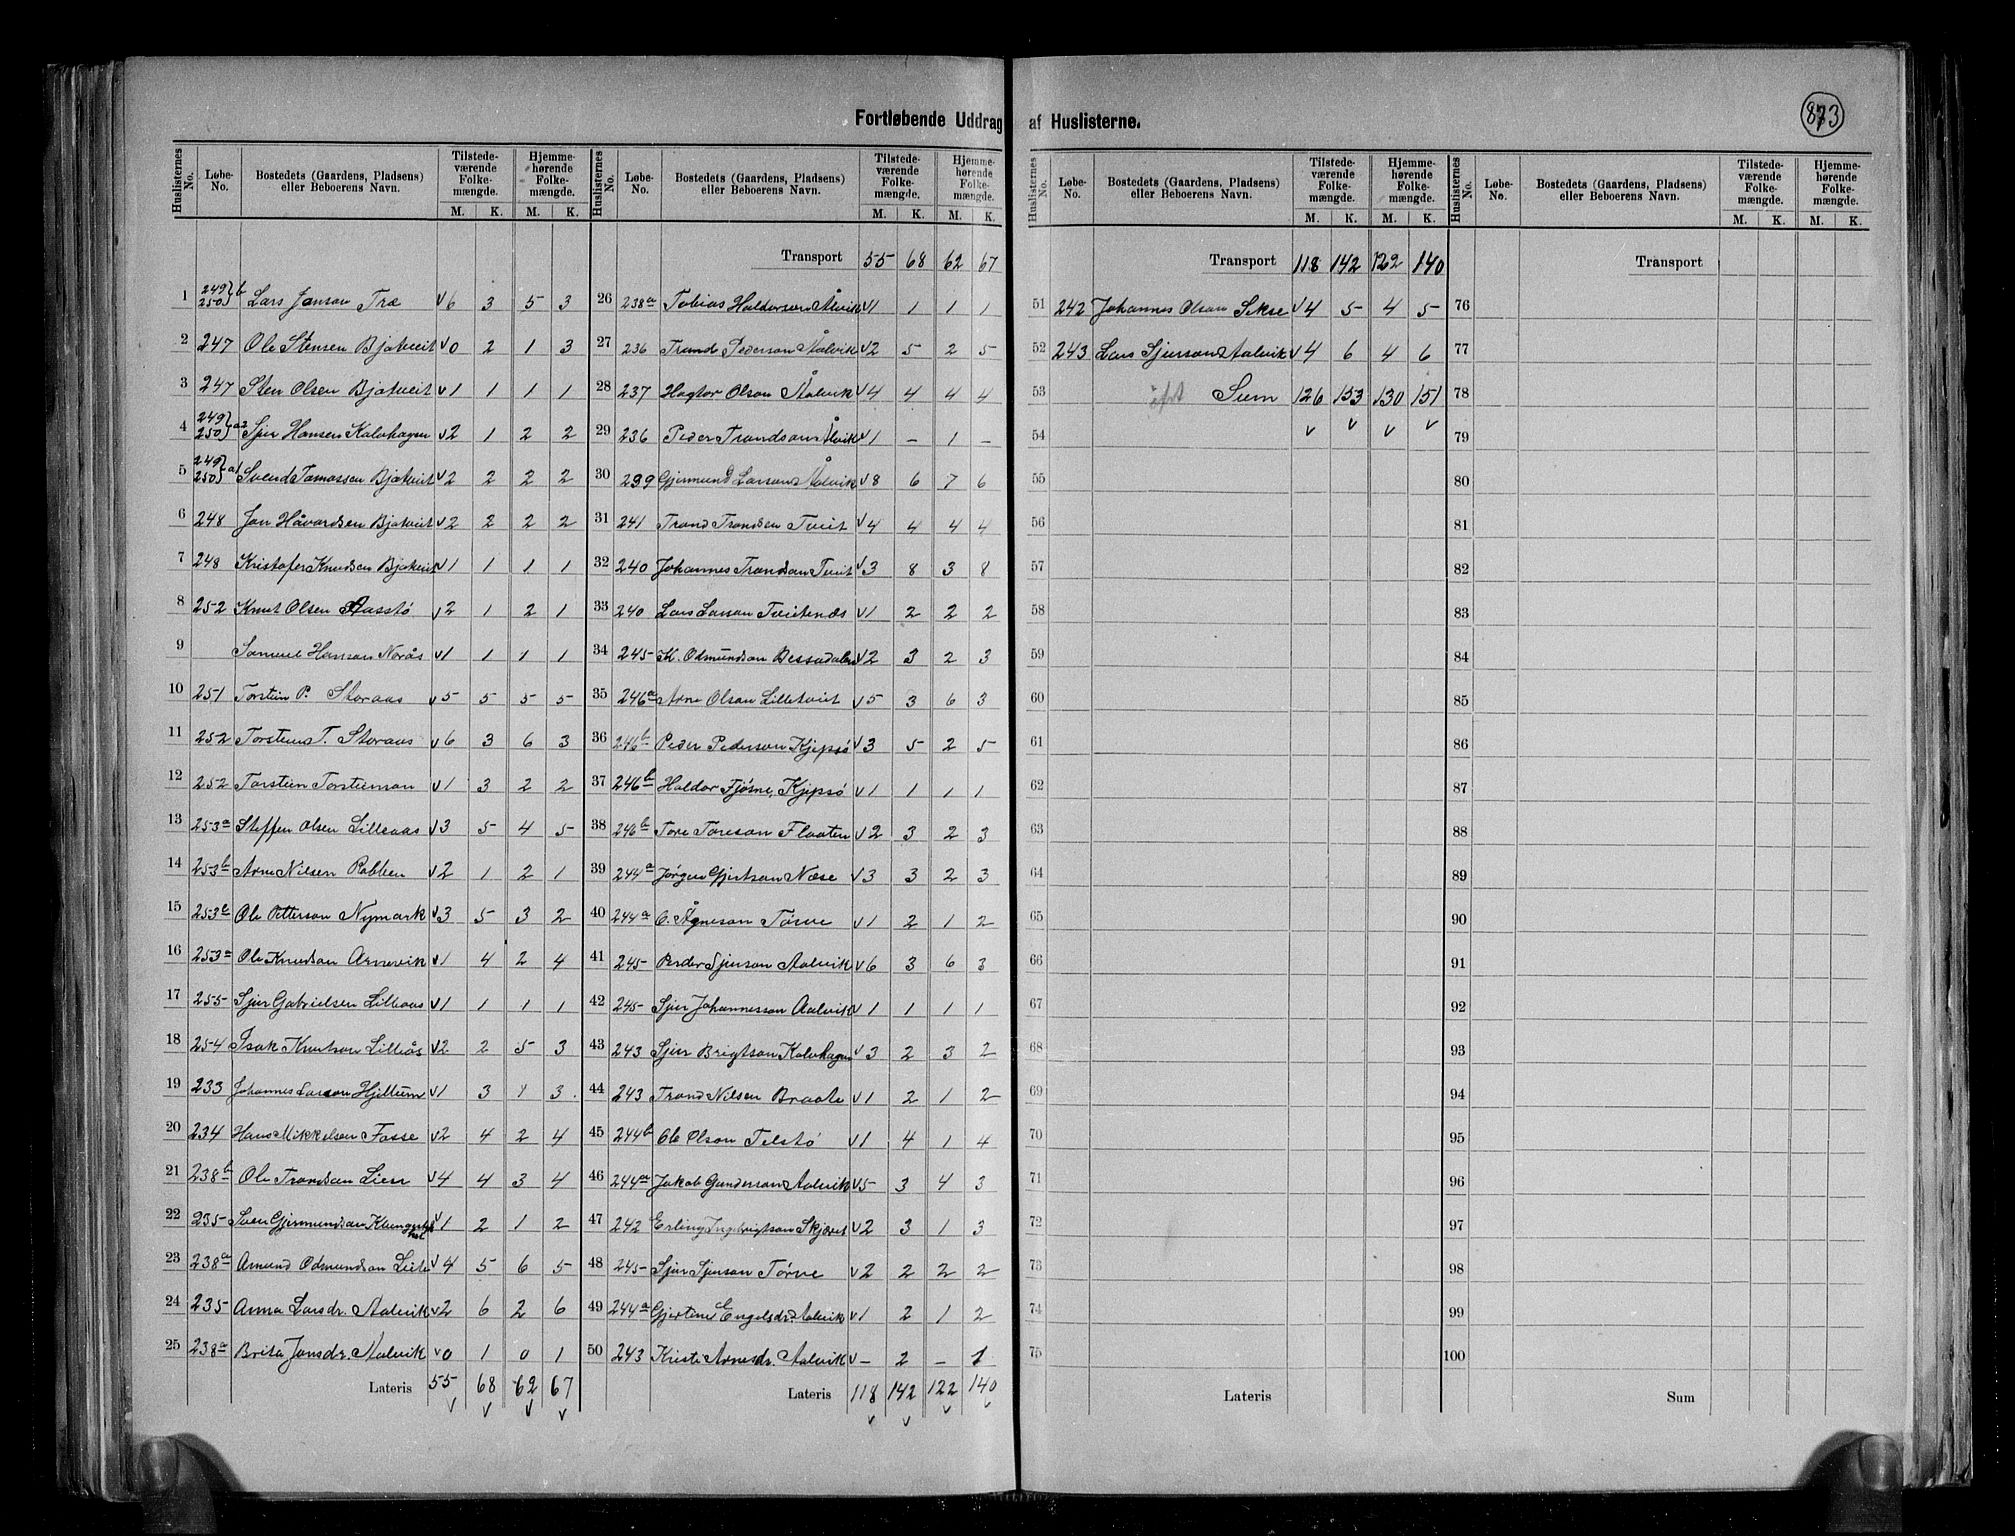 Fortløbende Uddrag af Huslisterne.
873
Huslisternes No. Løbe-No. Bostedets (Gaardens, Pladsens) eller Beboerens Navn. Tilstedeværende Folkemængde. M. K. Hjemmehørende Folkemængde. M. K.
1 249 250 b Lars Janson Træ v 6 3 5 3
2 247 Ole Stensen Bjotveit v 0 2 1 3
3 247 Sten Olsen Bjotveit v 1 1 1 1
4 249 250 a2 Sjur Hansen Kalvhagen v 2 1 2 2
5 249 250 a1 Svend Tomassen Bjotveit v 2 2 2 2
6 248 Jon Håvardsen Bjotveit v 2 2 2 2
7 248 Kristofer Knudsen Bjotveit v 1 1 1 1
8 252 Knut Olsen Aasstø v 2 1 2 1
9 Samuel Hanson Norås v 1 1 1 1
10 251 Torstein P. Storaas v 5 5 5 5
11 252 Torstein T. Storaas v 6 3 6 3
12 252 Torstein Torsteinson v 1 3 2 2
13 253a Steffen Olsen Lilleaas v 3 5 4 5
14 253b Arne Nilsen Rabben v 2 1 2 1
15 253b Ole Petterson Nymark v 3 5 3 2
16 253a Ole Knudson Arnevik v 1 4 2 4
17 255 Sjur Gabrielsen Lilleaas v 1 1 1 1
18 254 Isak Knutson Lilleås v 2 2 5 3
19 233 Johannes Larson Hjeltum v 1 3 1 3
20 234 Hans Mikkelsen Fosse v 2 4 2 4
21 238b Ole Trondsen Lien v 4 4 3 4
22 235 Sven Gjermundson v 1 2 1 2
23 238a Amund Odmundson Leite v 4 5 6 5
24 235 Anna Larsdr. Aalvik v 2 6 2 6
25 238a Brita Jonsdr. Aalvik v 0 1 0 1
Lateris 55 68 62 67
v v v v
Huslisternes No. Løbe-No. Bostedets (Gaardens, Pladsens) eller Beboerens Navn. Tilstedeværende Folkemængde. M. K. Hjemmehørende Folkemængde. M. K.
Transport 55 68 62 67
26 238a Tobias Haldorson Ålvik v 1 1 1 1
27 236 Trond Pederson Aalvik v 2 5 2 5
28 237 Hagtor Olson Ålvik v 4 4 4 4
29 236 Peder Trondson Ålvik v 1 – 1 –
30 239 Gjermund Larson Aalvik v 8 6 7 6
31 241 Trond Trondsen Tveit v 4 4 4 4
32 240 Johannes Trondson Tveit v 3 8 3 8
33 240 Lars Larson Tveitenæs v 1 2 2 2
34 245 K. Odmundson Bessadalen v 2 3 2 3
35 246a Arne Olson Lilletveit v 5 3 6 3
36 246b Peder Pederson Kjepsø v 3 5 2 5
37 246b Haldor Fjøsne, Kjepsø v 1 1 1 1
38 246b Tore Toreson Flaaten v 2 3 2 3
39 244a Jørgen Gjertson Næse v 3 3 2 3
40 244a O. Ågneson Tørve v 1 2 1 2
41 245 Peder Sjurson Aalvik v 6 3 6 3
42 245 Sjur Johannesson Aalvik v 1 1 1 1
43 243 Sjur Brigtson Kalvhagen v 3 2 3 2
44 243 Trond Nilsen Braate v 1 2 1 2
45 244b Ole Olson Telstø v 1 4 1 4
46 244a Jakob Gunderson Aalvik v 5 3 4 3
47 242 Erling Ingebrigtson Skjæret v 2 3 1 3
48 245 Sjur Sjurson Tørve v 2 2 2 2
49 244a Gjertine Engelsdr. Aalvik v 1 2 1 2
50 243 Kristi Arnesdr. Aalvik v – 2 – 1
Lateris 118 142 122 140
v v v v
Huslisternes No. Løbe-No. Bostedets (Gaardens, Pladsens) eller Beboerens Navn. Tilstedeværende Folkemængde. M. K. Hjemmehørende Folkemængde. M. K.
Transport 118 142 122 140
51 242 Johannes Olson Sekse v 4 5 4 5
52 243 Lars Sjurson Aalvik v 4 6 4 6
53 Sum 126 153 130 151
54 v v v v
55
56
57
58
59
60
61
62
63
64
65
66
67
68
69
70
71
72
73
74
75
Lateris
Huslisternes No. Løbe-No. Bostedets (Gaardens, Pladsens) eller Beboerens Navn. Tilstedeværende Folkemængde. M. K. Hjemmehørende Folkemængde. M. K.
Transport
76
77
78
79
80
81
82
83
84
85
86
87
88
89
90
91
92
93
94
95
96
97
98
99
100
Sum